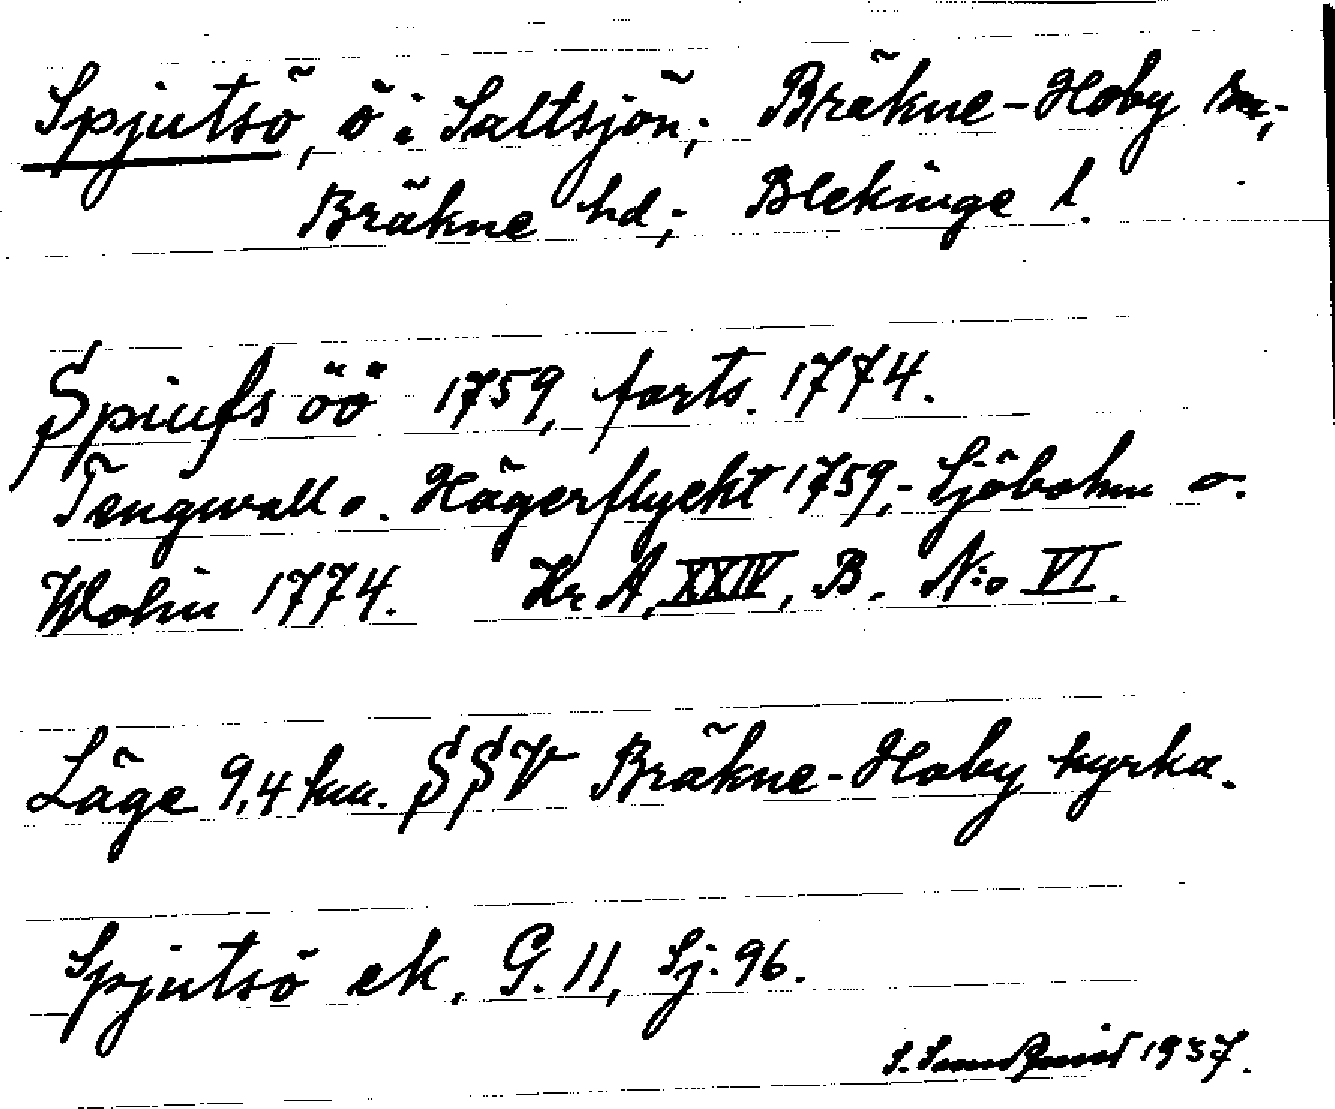 Spjutsö, ö i Saltsjön; Bräkne-Hoby sn;
Bräkne hd; Blekinge l.
Spiufs öö 1759, forts. 1774.
Tengwall o. Hägerflycht 1759; Sjöbohm o.
Wohin 1774. Kr A, XXIV, B. N:o VI.
Läge 9,4 km. SSV Bräkne-Hoby kyrka.
Spjutsö ek. G. 11, Sj. 96.
S. 1937.